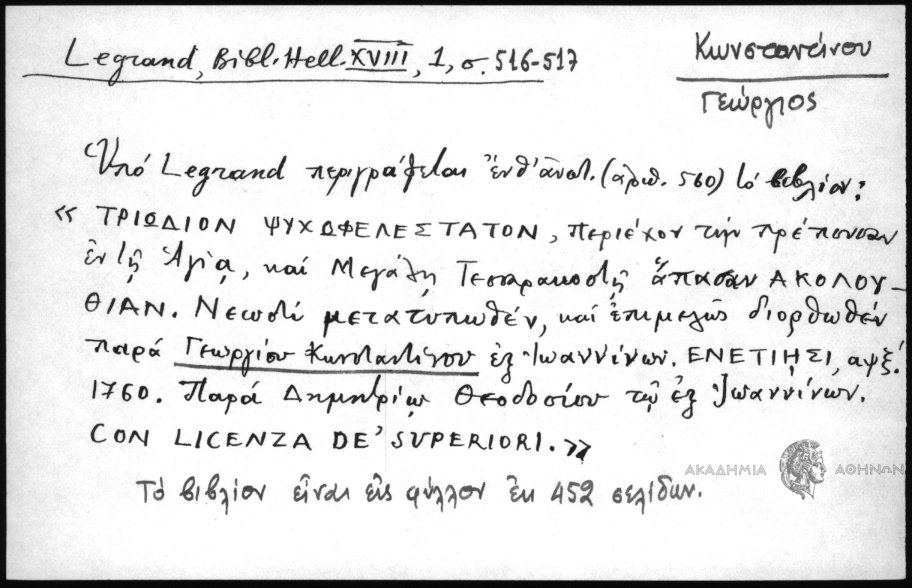 Legrand, Bibl. Hell. XVIII, 1, σ. 516-517
Κωνσταντίνου
Γεώργιος
Ὑπό Legrand περιγράφεται ἔνθ' ἀνωτ. (ἀριθ. 560) τό βιβλίον:
« ΤΡΙΩΔΙΟΝ ΨΥΧΩΦΕΛΕΣΤΑΤΟΝ, περιέχον τήν πρέπουσαν
ἐν τῇ Ἁγίᾳ, καί Μεγάλῃ Τεσσαρακοστῇ ἅπασαν ΑΚΟΛΟΥ-
ΘΙΑΝ. Νεωστί μετατυπωθέν, καί ἐπιμελῶς διορθωθέν
παρά Γεωργίου Κωνσταντίνου ἐξ Ἰωαννίνων. ΕΝΕΤΙΗΣΙ, αψξ΄.
1760. Παρά Δημητρίῳ Θεοδοσίου τῷ ἐξ Ἰωαννίνων.
CON LICENZA DE' SUPERIORI. »
ΑΚΑΔΗΜΙΑ ΑΘΗΝΩΝ
Τό βιβλίον εἶναι εἰς φύλλον ἐκ 452 σελίδων.